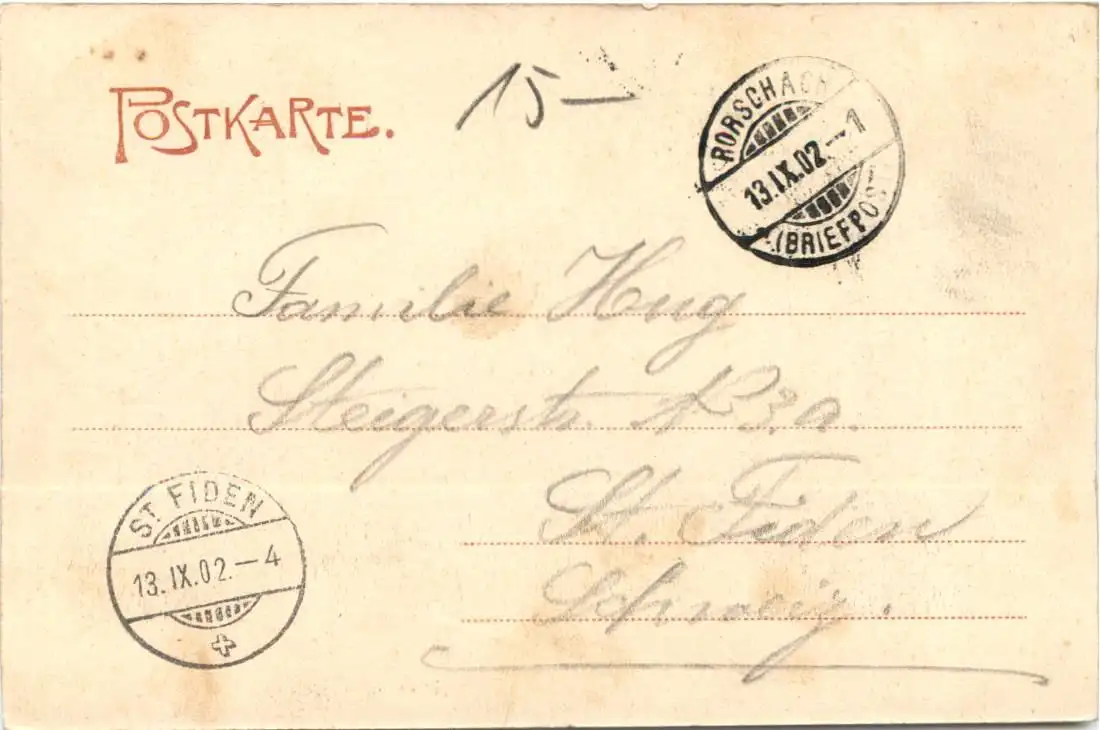 POSTKARTE.
15—
RORSCHACH
13.IX.02.—1
(BRIEFPOST
Familie Hug
Steigerstr. No 3.a.
St. Fiden
Schweiz.
ST. FIDEN
13.IX.02.—4